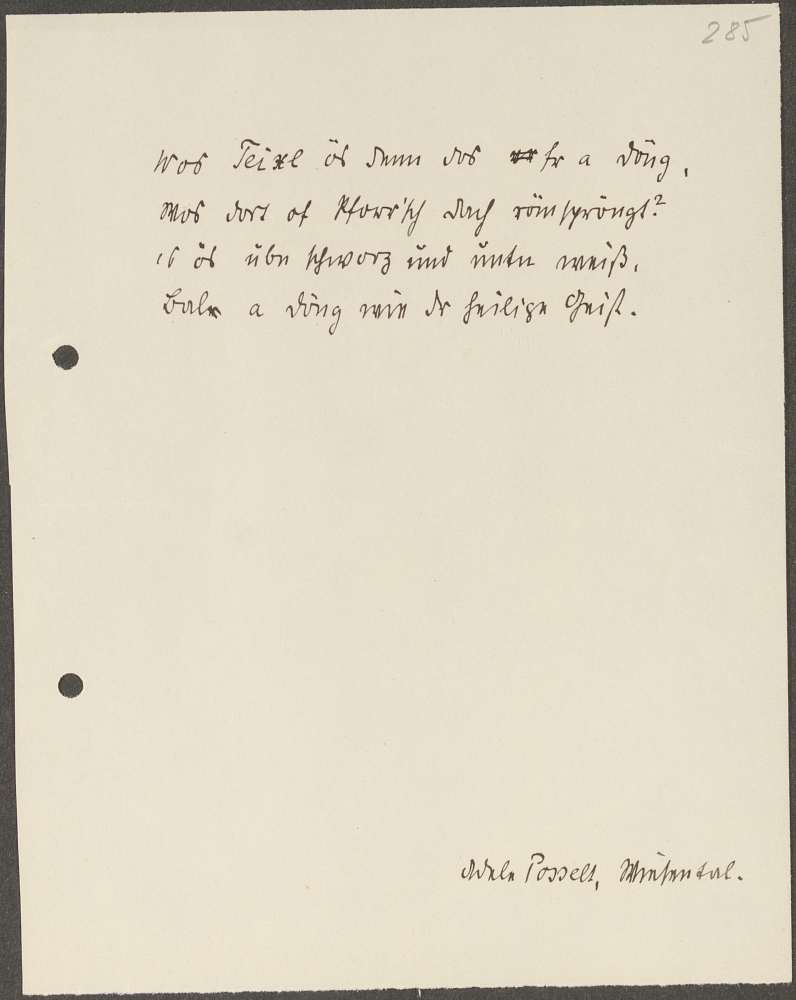 285
Wos Teixl ös denn dos fr a döng,
Wos dort of Pforr'sch Dach römspröngt?
's ös übn schworz und untn weiß,
Bale a döng wie dr heilige Geist.
Adele Posselt, Wiesental.